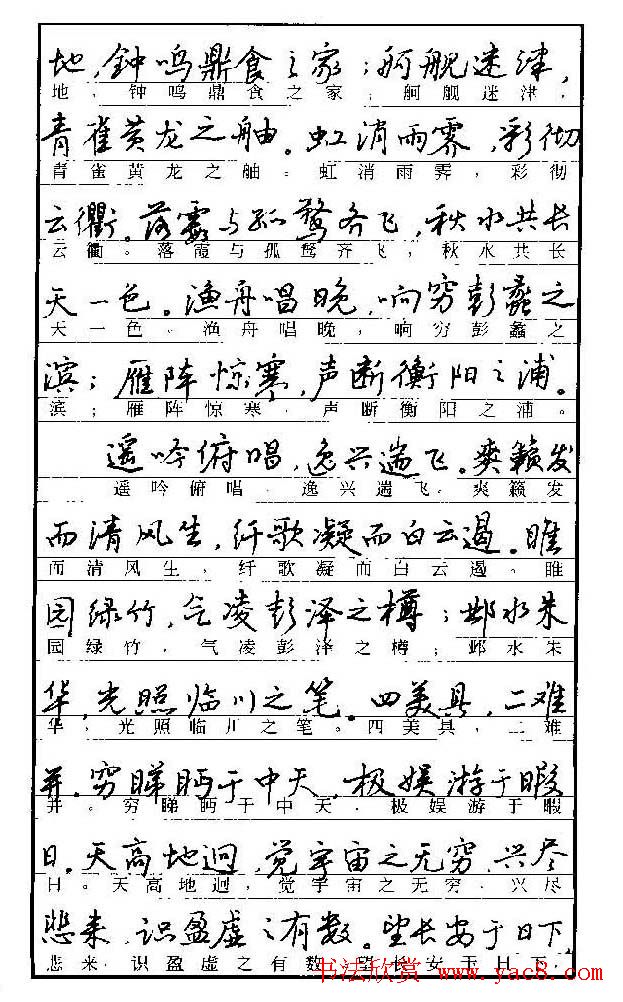 地，钟鸣鼎食之家；舸舰迷津，
地，钟鸣鼎食之家；舸舰迷津，
青雀黄龙之舳。虹消雨霁，彩彻
青雀黄龙之舳。虹消雨霁，彩彻
云衢。落霞与孤鹜齐飞，秋水共长
云衢。落霞与孤鹜齐飞，秋水共长
天一色。渔舟唱晚，响穷彭蠡之
天一色。渔舟唱晚，响穷彭蠡之
滨；雁阵惊寒，声断衡阳之浦。
滨；雁阵惊寒，声断衡阳之浦。
遥吟俯唱，逸兴遄飞。爽籁发
遥吟俯唱，逸兴遄飞。爽籁发
而清风生，纤歌凝而白云遏。睢
而清风生，纤歌凝而白云遏。睢
园绿竹，气凌彭泽之樽；邺水朱
园绿竹，气凌彭泽之樽；邺水朱
华，光照临川之笔。四美具，二难
华，光照临川之笔。四美具，二难
并。穷睇眄于中天，极娱游于暇
并。穷睇眄于中天，极娱游于暇
日。天高地迥，觉宇宙之无穷，兴尽
日。天高地迥，觉宇宙之无穷，兴尽
悲来，识盈虚之有数。望长安于日下
悲来，识盈虚之有数。望长安于日下，
书法欣赏 www.yac8.com